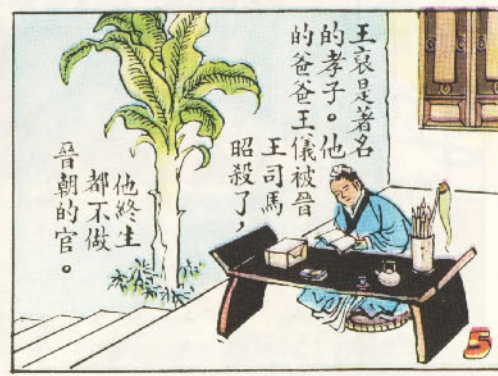 王裒是著名
的孝子。他
的爸爸王儀被晉
王司馬
昭殺了，
他終生
都不做
晉朝的官。
5